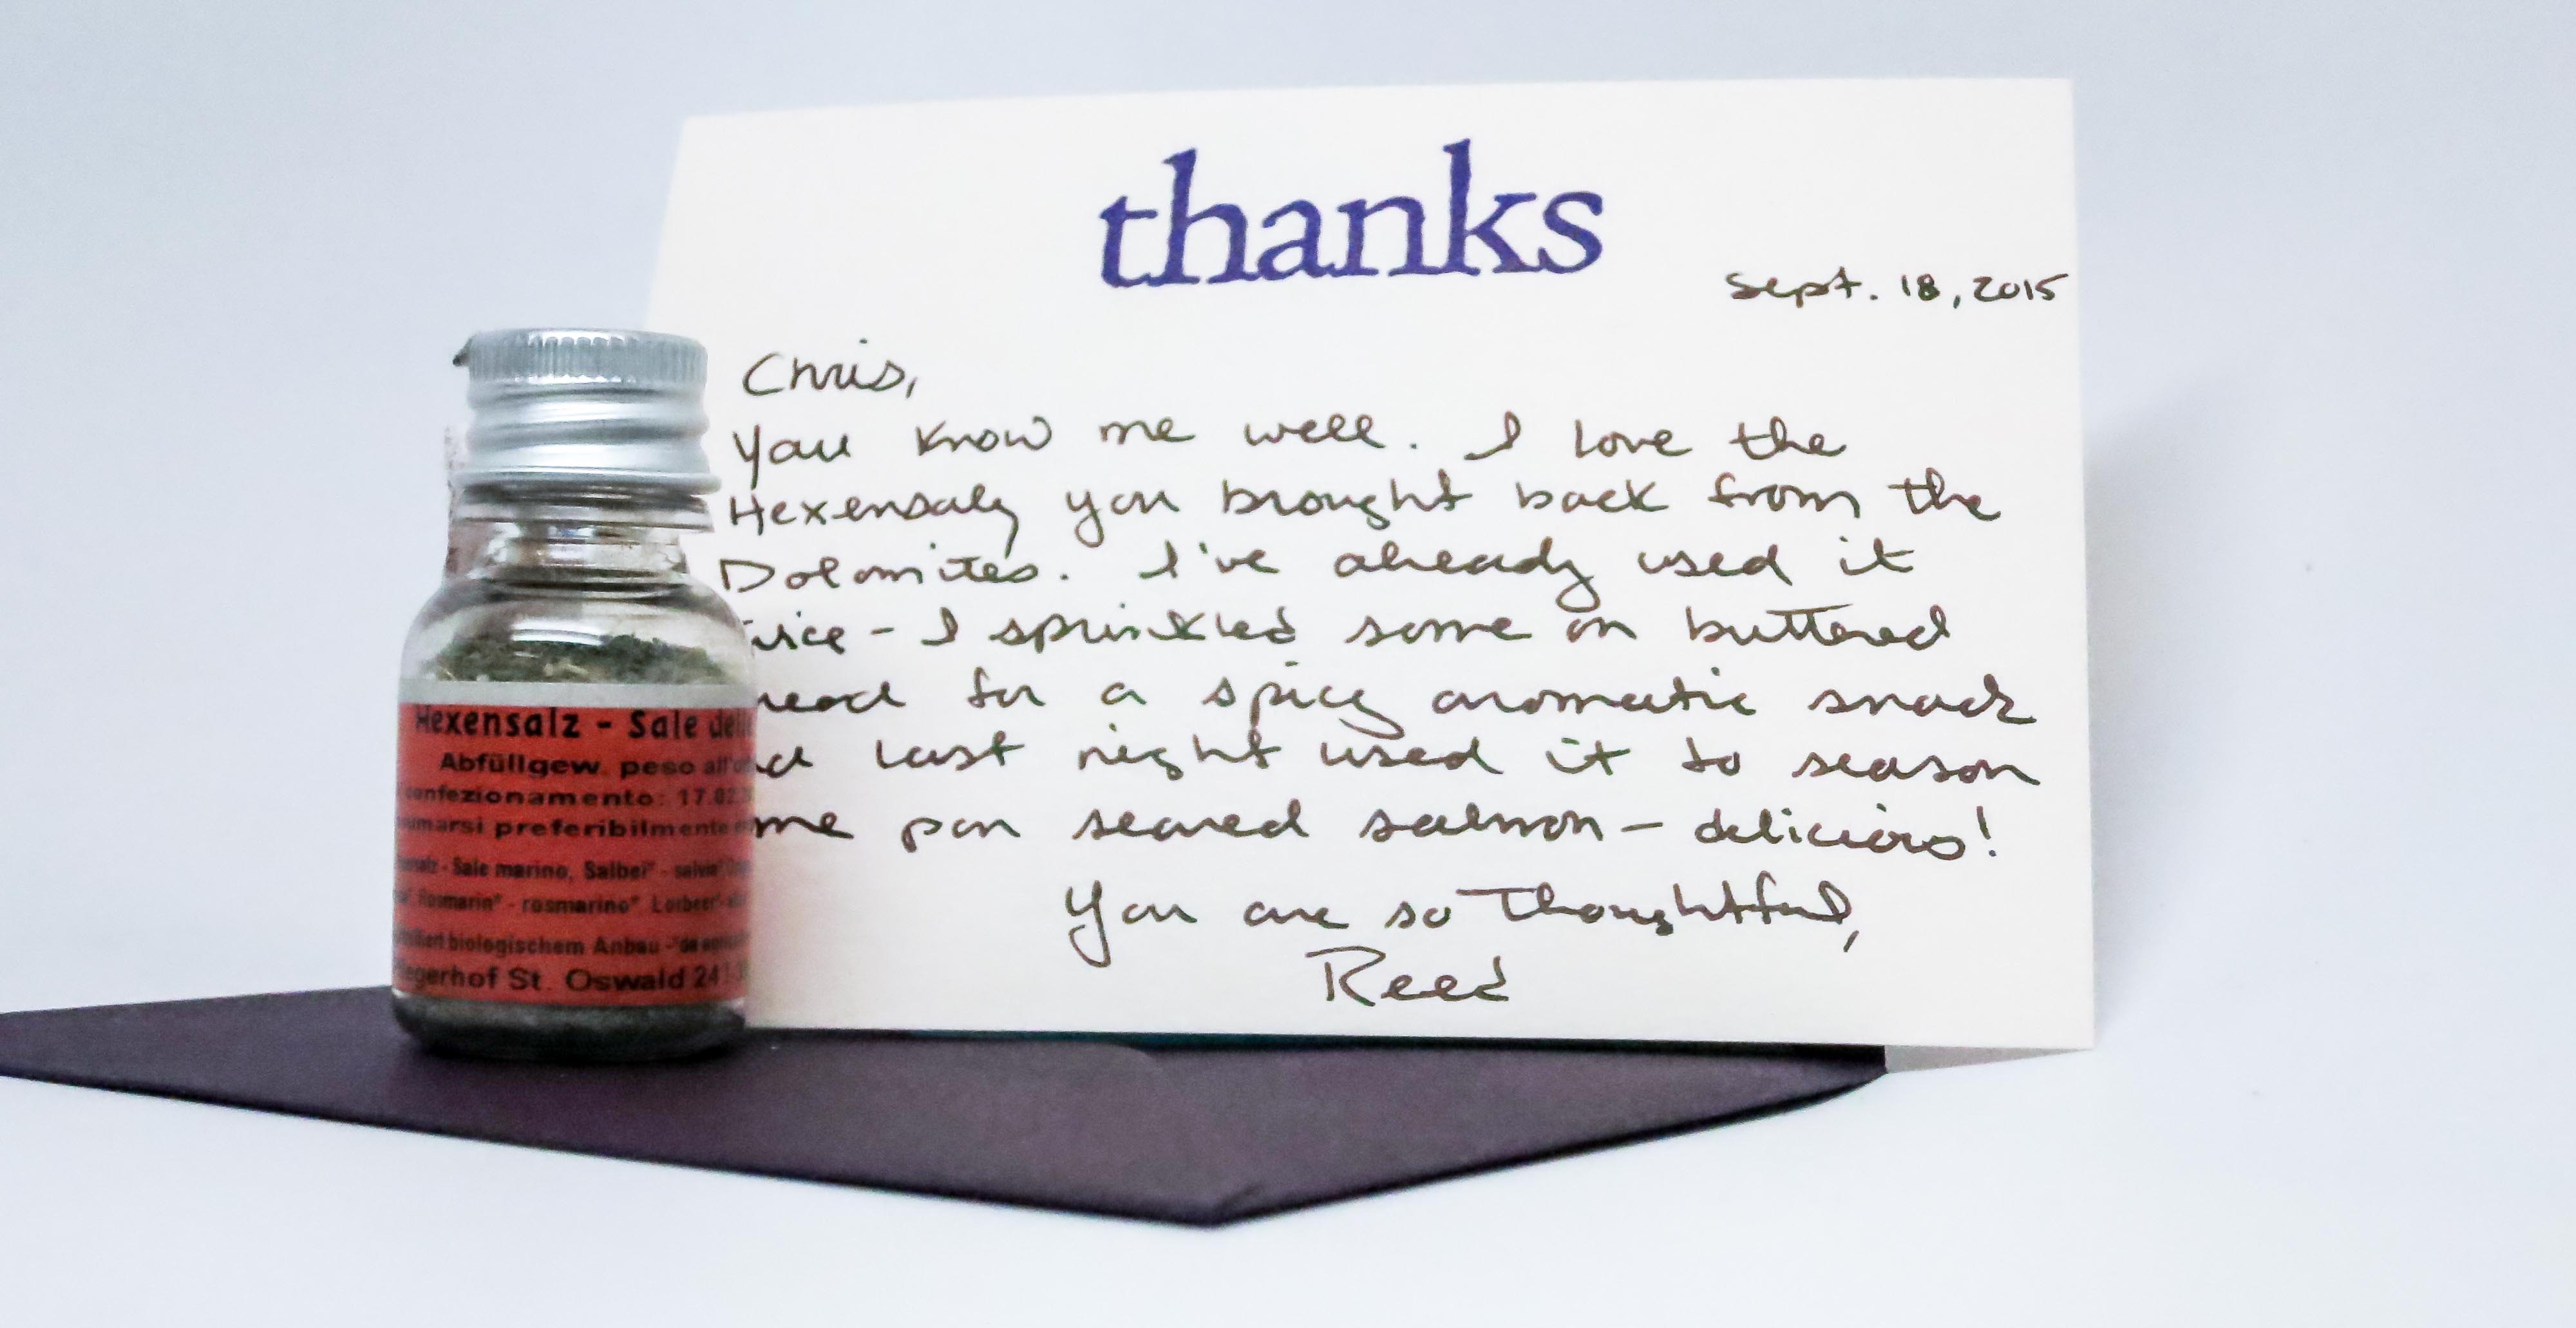 thanks
Sept. 18, 2015
Chris,
You know me well. I love the
Hexensalz you brought back from the
Dolomites. I've already used it
wice - I sprinkled some on buttered
read for a spicy aromatic snack
nd last night used it to season
me pan seared salmon - delicious!
You are so thoughtful,
Reed
Hexensalz - Sale del
Abfüllgew. peso all'
confezionamento: 17.02
marsi preferibilmente
Sale marino, Salbei* - salvia*
Rosmarin* - rosmarino* Lorbeer
biologischem Anbau - *da
legerhof St. Oswald 24